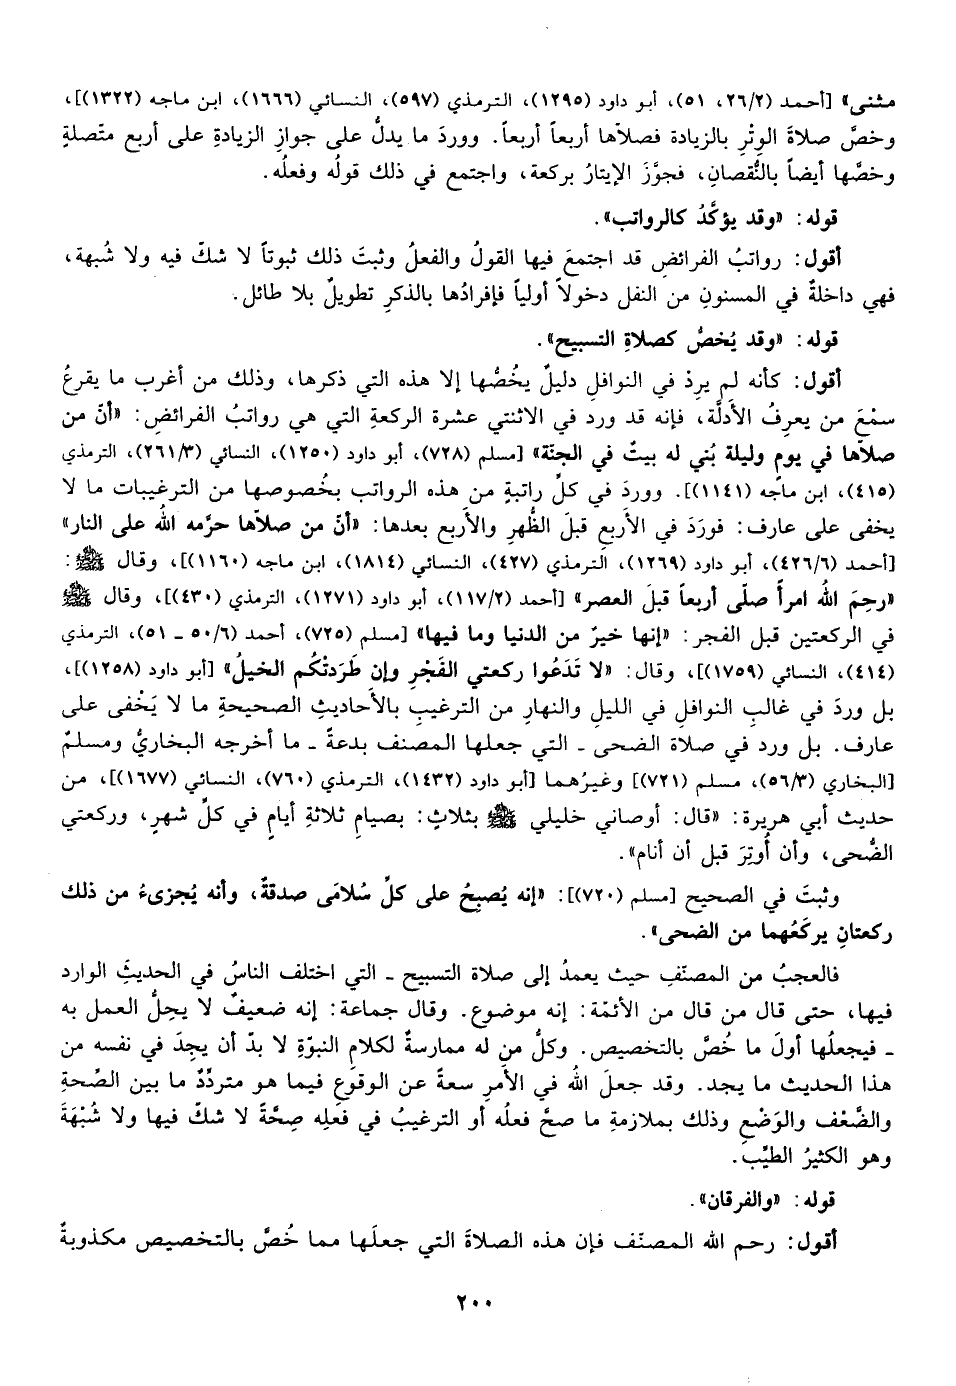 مثنى» [أحمد (٢٦/٢، ٥١)، أبو داود (١٢٩٥)، الترمذي (٥٩٧)، النسائي (١٦٦٦)، ابن ماجه (١٣٢٢)]،
وخصَّ صلاةَ الوِتْرِ بالزيادة فصلاّها أربعاً أربعاً. ووردَ ما يدلُّ على جوازِ الزيادةِ على أربع متّصلةٍ
وخصَّها أيضاً بالنُّقصانِ، فجوَّزَ الإيتارُ بركعة، واجتمع في ذلك قولُه وفعلُه.
قوله: «وقد يؤكَّدُ كالرواتب».
أقول: رواتبُ الفرائضِ قد اجتمعَ فيها القولُ والفعلُ وثبتَ ذلك ثبوتاً لا شكّ فيه ولا شُبهة،
فهي داخلةٌ في المسنونِ من النفل دخولاً أولياً فإفرادُها بالذكرِ تطويلٌ بلا طائل.
قوله: «وقد يُخصُّ كصلاةِ التسبيح».
أقول: كأنه لم يرِدْ في النوافلِ دليلٌ يخُصُّها إلا هذه التي ذكرها، وذلك من أغرب ما يقرعُ
سمْعَ من يعرِفُ الأدلَّة، فإنه قد ورد في الاثنتي عشرة الركعةِ التي هي رواتبُ الفرائضِ: «أنّ من
صلاّها في يومٍ وليلة بُني له بيتٌ في الجنّة» [مسلم (٧٢٨)، أبو داود (١٢٥٠)، النسائي (٢٦١/٣)، الترمذي
(٤١٥)، ابن ماجه (١١٤١)]. ووردَ في كلِّ راتبةٍ من هذه الرواتب بخُصوصها من الترغيبات ما لا
يخفى على عارف: فورَدَ في الأَربعِ قبلَ الظُّهرِ والأربعِ بعدها: «أنّ من صلاّها حرّمه اللّه على النار»
[أحمد (٤٢٦/٦)، أبو داود (١٢٦٩)، الترمذي (٤٢٧)، النسائي (١٨١٤)، ابن ماجه (١١٦٠)]، وقال ﷺ:
«رحِمَ اللّهُ امرأً صلّى أربعاً قبلَ العصر» [أحمد (١١٧/٢)، أبو داود (١٢٧١)، الترمذي (٤٣٠)]، وقال ﷺ
في الركعتين قبل الفجر: «إنها خيرٌ من الدنيا وما فيها» [مسلم (٧٢٥)، أحمد (٥٠/٦ ـ ٥١)، الترمذي
(٤١٤)، النسائي (١٧٥٩)]، وقال: «لا تَدَعُوا ركعتي الفَجْرِ وإن طَرَدتْكُم الخيلُ» [أبو داود (١٢٥٨)]،
بل وردَ في غالبِ النوافلِ في الليلِ والنهارِ من الترغيبِ بالأحاديثِ الصحيحةِ ما لا يَخْفى على
عارف. بل ورد في صلاة الضحى ـ التي جعلها المصنف بدعةً ـ ما أخرجه البخاريُّ ومسلمٌ
[البخاري (٥٦/٣)، مسلم (٧٢١)] وغيرُهما [أبو داود (١٤٣٢)، الترمذي (٧٦٠)، النسائي (١٦٧٧)]، من
حديث أبي هريرة: «قال: أوصاني خليلي ﷺ بثلاثٍ: بصيامِ ثلاثةِ أيامٍ في كلِّ شهرٍ، وركعتي
الضُّحى، وأن أُوتِرَ قبل أن أنام».
وثبتَ في الصحيح [مسلم (٧٢٠)]: «إنه يُصبِحُ على كلِّ سُلامَى صدقةٌ، وأنه يُجزىءُ من ذلك
ركعتانِ يركَعُهما من الضحى».
فالعجبُ من المصنّفِ حيث يعمدُ إلى صلاة التسبيح ـ التي اختلف الناسُ في الحديثِ الوارد
فيها، حتى قال من قال من الأئمّة: إنه موضوع. وقال جماعة: إنه ضعيفٌ لا يحِلُّ العمل به
ـ فيجعلُها أولَ ما خُصَّ بالتخصيص. وكلُّ من له ممارسةٌ لكلامِ النبوّةِ لا بدّ أن يجِدَ في نفسه من
هذا الحديث ما يجد. وقد جعلَ اللّه في الأمرِ سعةً عن الوقوعِ فيما هو متردِّدٌ ما بين الصِّحةِ
والضَّعْف والوَضْعِ وذلك بملازمةِ ما صحَّ فعلُه أو الترغيبُ في فعلِه صِحَّةً لا شكّ فيها ولا شُبْهَةَ
وهو الكثيرُ الطيِّب.
قوله: «والفرقان».
أقول: رحم اللّه المصنّف فإن هذه الصلاةَ التي جعلَها مما خُصَّ بالتخصيص مكذوبةٌ
٢٠٠